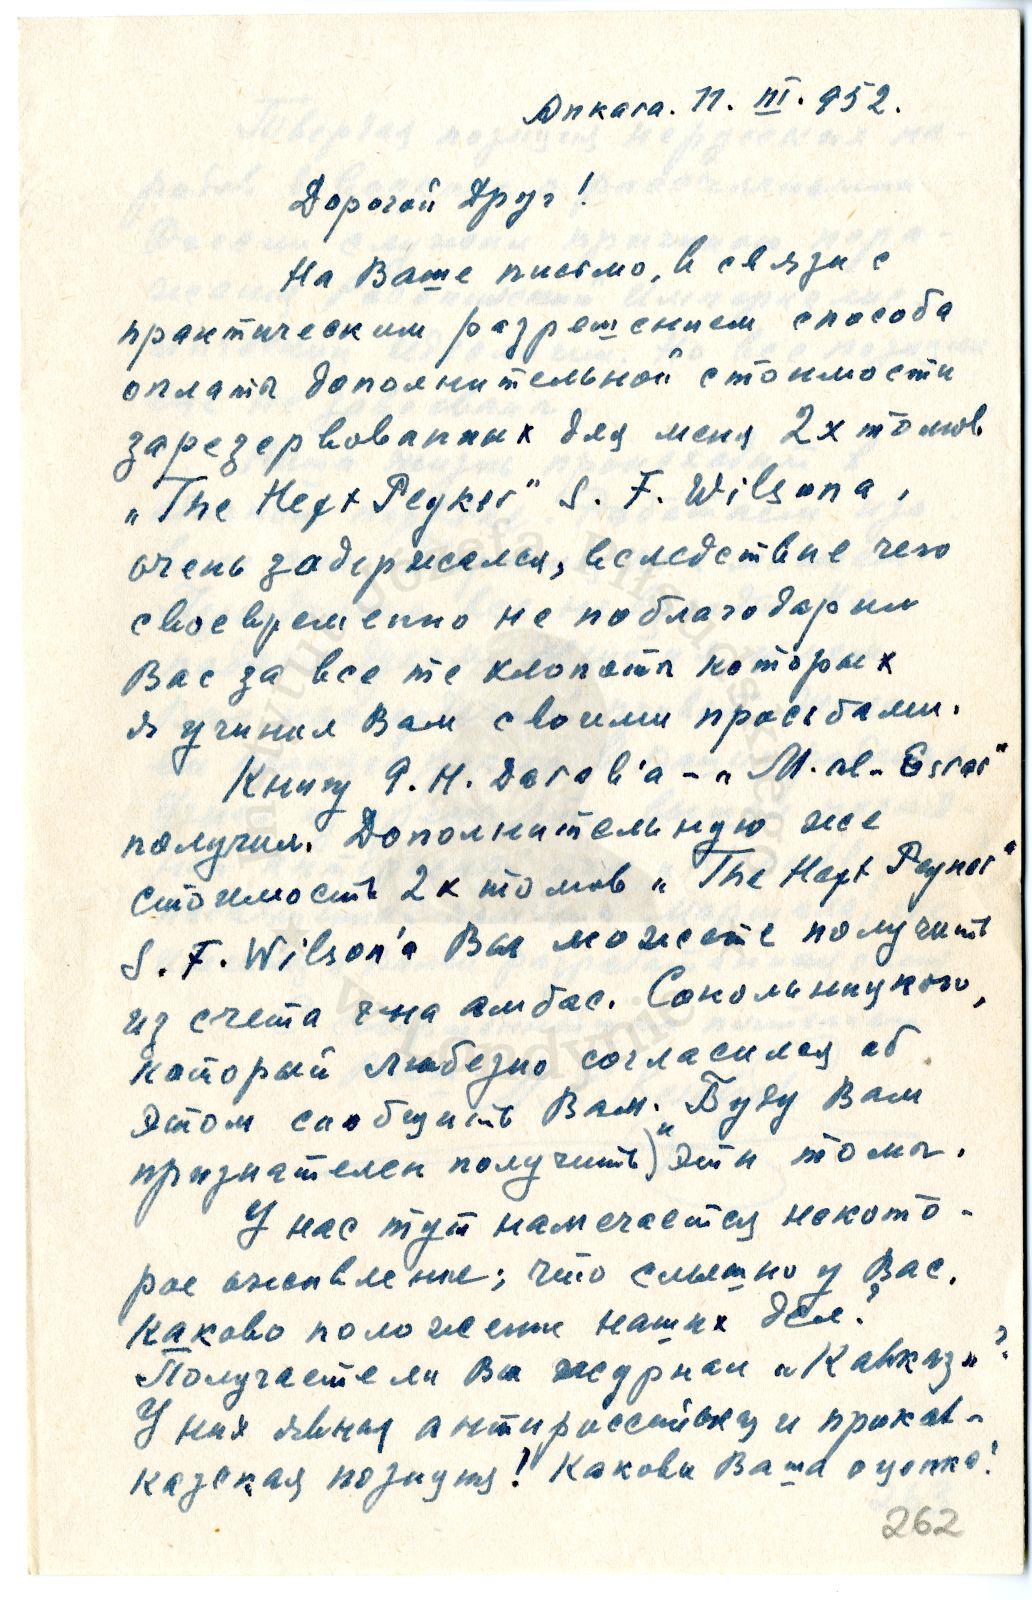 Анкага. 11. III. 952.
Дорогой Друг!
На Ваше письмо, в связи с
практическим разрешением способа
оплаты дополнительной стоимости
зарезервованных для меня 2х томов
„The Heft Peyker" S. F. Wilsona,
очень задержался, вследствие чего
своевременно не поблагодарил
Вас за все те клопоты которых
я учинил Вам своими просьбами.
Книгу G. H. Darab'a – „M. ul – Esrar"
получил. Дополнительную же
стоимость 2х томов „The Heft Peyker"
S. F. Wilson'a Вы можете получить
из счета г-на амбас. Сокольницкого,
который любезно согласился об
этом сообщить Вам. Буду Вам
признателен получить эти томы.
У нас тут намечается некото-
рое оживление; что слышно у Вас.
Каково положение наших дел?
Получаете ли Вы журнал „Кавказ"?
У них явная антироссийская и прокав-
казская позиция! Какова Ваша оценка?
262
Instytutu Józefa Piłsudskiego
w Londynie